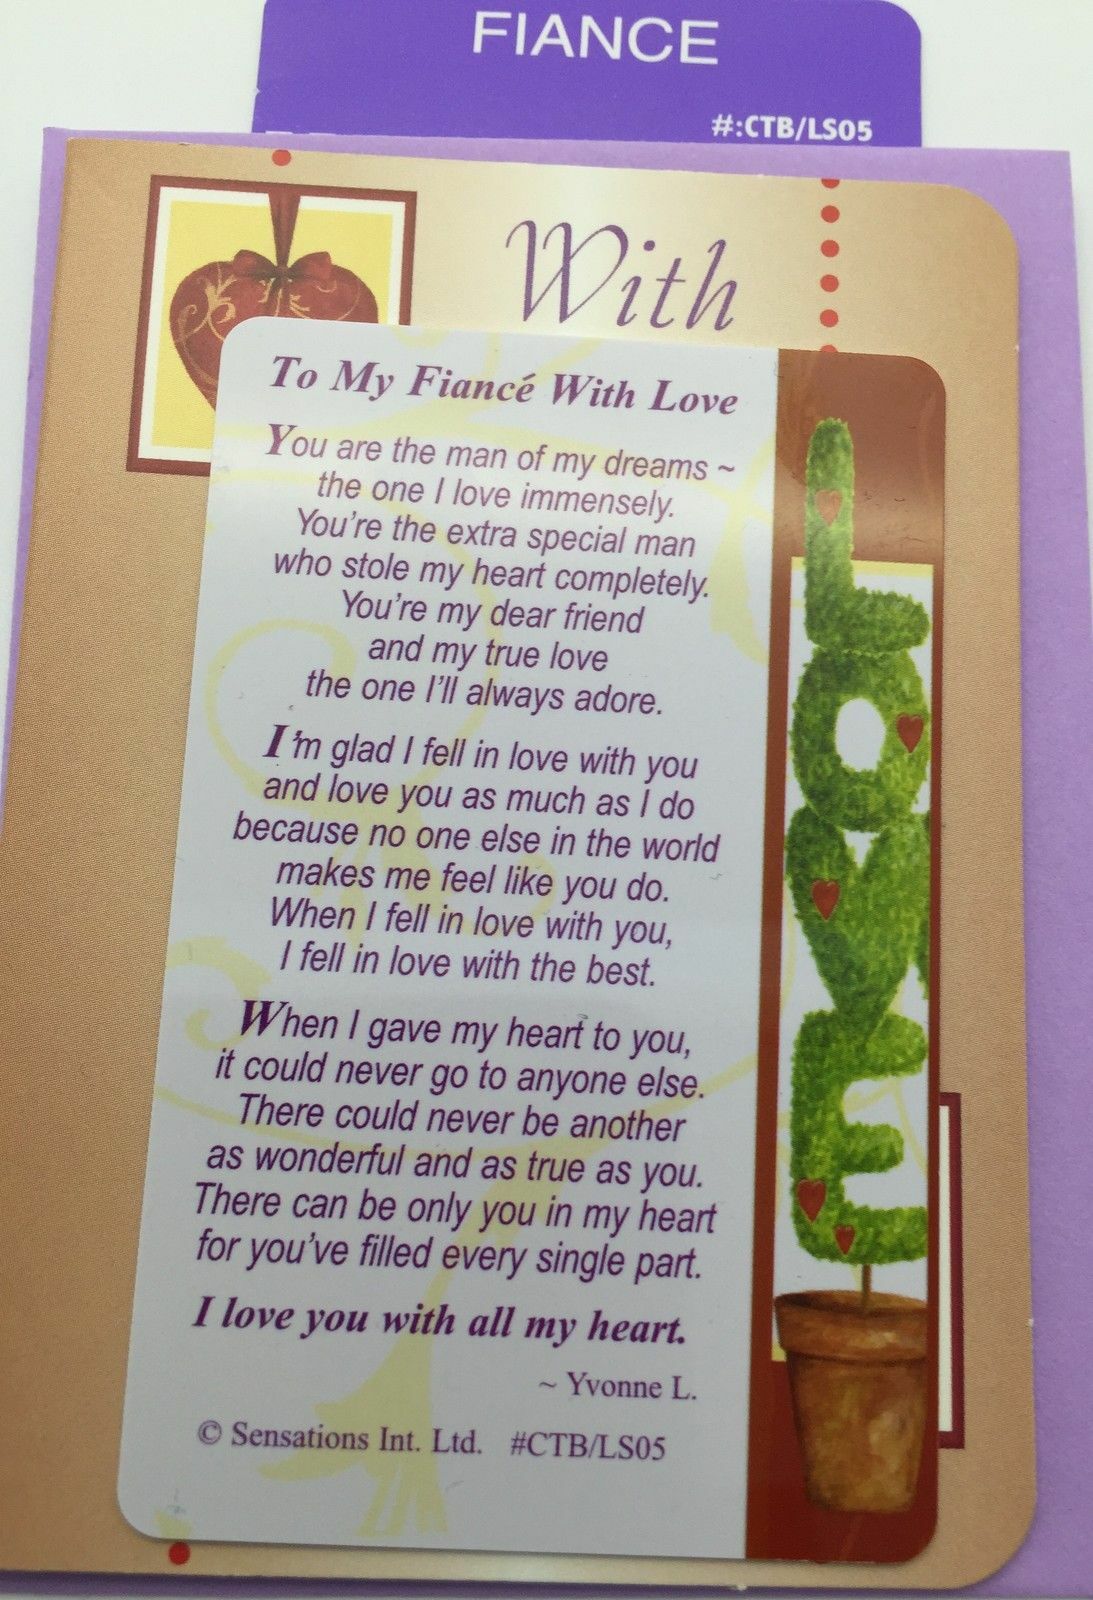 FIANCE
#:CTB/LS05
With
To My Fiancé With Love
You are the man of my dreams ~
the one I love immensely.
You're the extra special man
who stole my heart completely.
You're my dear friend
and my true love
the one I'll always adore.
I'm glad I fell in love with you
and love you as much as I do
because no one else in the world
makes me feel like you do.
When I fell in love with you,
I fell in love with the best.
When I gave my heart to you,
it could never go to anyone else.
There could never be another
as wonderful and as true as you.
There can be only you in my heart
for you've filled every single part.
I love you with all my heart.
~ Yvonne L.
© Sensations Int. Ltd. #CTB/LS05
LOVE